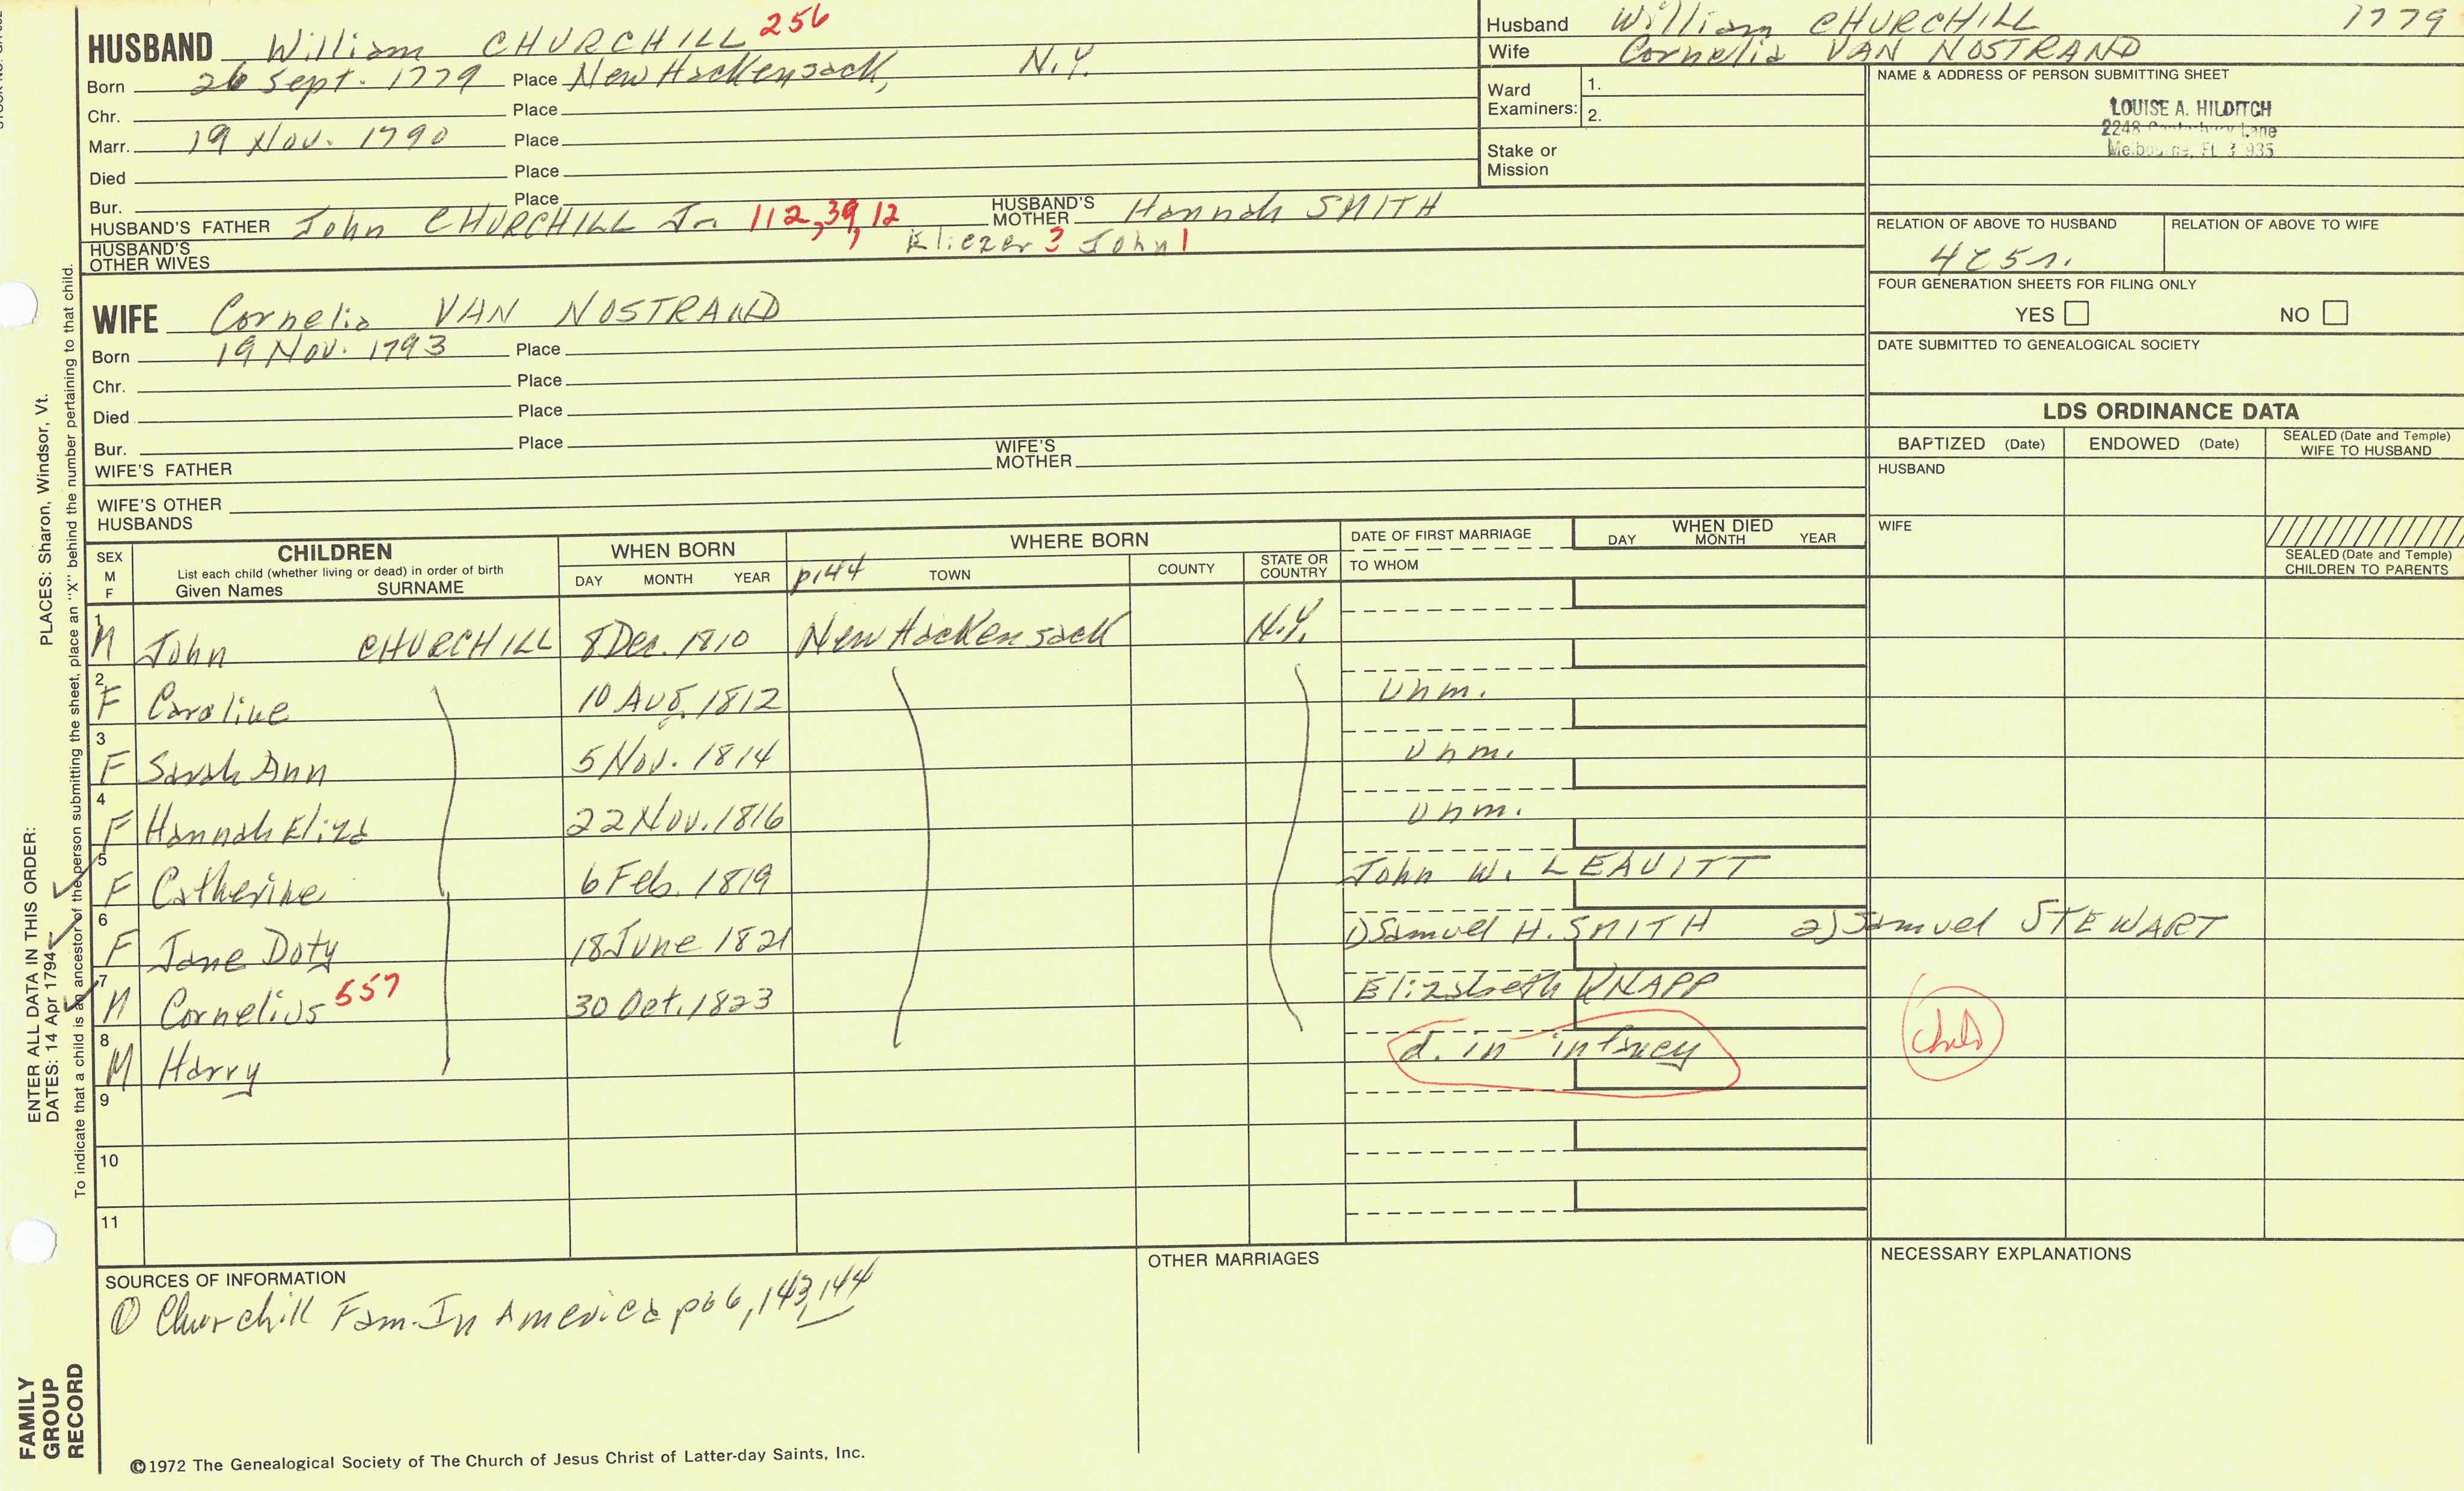 HUSBAND William CHURCHILL 256
Born 26 Sept. 1779 Place New Hackensack, N.Y.
Chr. Place
Marr. 19 Nov. 1790 Place
Died Place
Bur. Place
HUSBAND'S FATHER John CHURCHILL Jr. 112, 39, 12 HUSBAND'S MOTHER Hannah SMITH
HUSBAND'S OTHER WIVES Eliezer 3 John 1
WIFE Cornelia VAN NOSTRAND
Born 19 Nov. 1793 Place
Chr. Place
Died Place
Bur. Place
WIFE'S FATHER WIFE'S MOTHER
WIFE'S OTHER HUSBANDS
Husband William CHURCHILL 1779
Wife Cornelia VAN NOSTRAND
Ward Examiners: 1.
2.
Stake or Mission
NAME & ADDRESS OF PERSON SUBMITTING SHEET
LOUISE A. HILDITCH
2248 Lane
Melbourne, FL
RELATION OF ABOVE TO HUSBAND RELATION OF ABOVE TO WIFE
FOUR GENERATION SHEETS FOR FILING ONLY
YES NO
DATE SUBMITTED TO GENEALOGICAL SOCIETY
LDS ORDINANCE DATA
BAPTIZED (Date) ENDOWED (Date) SEALED (Date and Temple) WIFE TO HUSBAND
HUSBAND
WIFE
SEALED (Date and Temple) CHILDREN TO PARENTS
SEX M F CHILDREN WHEN BORN WHERE BORN DATE OF FIRST MARRIAGE WHEN DIED
List each child (whether living or dead) in order of birth
Given Names SURNAME DAY MONTH YEAR p.144 TOWN COUNTY STATE OR COUNTRY TO WHOM DAY MONTH YEAR
1 M John CHURCHILL 8 Dec. 1810 New Hackensack N.Y.
2 F Caroline 10 Aug. 1812 unm.
3 F Sarah Ann 5 Nov. 1814 unm.
4 F Hannah Eliza 22 Nov. 1816 unm.
5 F Catherine 6 Feb. 1819 John W. LEAVITT
6 F Jane Doty 18 June 1821 1) Samuel H. SMITH 2) Samuel STEWART
7 M Cornelius 557 30 Oct. 1823 Elizabeth KNAPP
8 M Harry d. in infncy child
9
10
11
SOURCES OF INFORMATION
① Churchill Fam. In America p 66, 143, 144
OTHER MARRIAGES
NECESSARY EXPLANATIONS
©1972 The Genealogical Society of The Church of Jesus Christ of Latter-day Saints, Inc.
FAMILY GROUP RECORD
ENTER ALL DATA IN THIS ORDER:
DATES: 14 Apr 1794
PLACES: Sharon, Windsor, Vt.
To indicate that a child is an ancestor of the person submitting the sheet, place an "X" behind the number pertaining to that child.